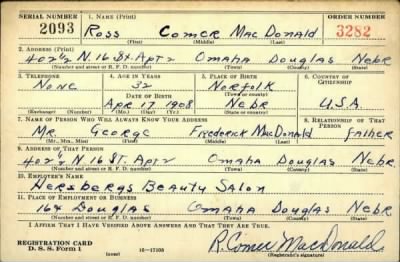 SERIAL NUMBER 1. NAME (Print) ORDER NUMBER
2093 Ross Comer MacDonald 3282
(First) (Middle) (Last)
2. ADDRESS (Print)
402½ N. 16 St. Apt 2 Omaha Douglas Nebr
(Number and street or R. F. D. number) (Town) (County) (State)
3. TELEPHONE 4. AGE IN YEARS 5. PLACE OF BIRTH 6. COUNTRY OF CITIZENSHIP
None 32 Norfolk
DATE OF BIRTH (Town or county)
Apr 17 1908 Nebr U.S.A.
(Exchange) (Number) (Mo.) (Day) (Yr.) (State or country)
7. NAME OF PERSON WHO WILL ALWAYS KNOW YOUR ADDRESS 8. RELATIONSHIP OF THAT PERSON
Mr. George Frederick MacDonald father
(Mr., Mrs., Miss) (First) (Middle) (Last)
9. ADDRESS OF THAT PERSON
402½ N. 16 St. Apt 2 Omaha Douglas Nebr
(Number and street or R. F. D. number) (Town) (County) (State)
10. EMPLOYER'S NAME
Herzbergs Beauty Salon
11. PLACE OF EMPLOYMENT OR BUSINESS
16th Douglas Omaha Douglas Nebr
(Number and street or R. F. D. number) (Town) (County) (State)
I AFFIRM THAT I HAVE VERIFIED ABOVE ANSWERS AND THAT THEY ARE TRUE.
REGISTRATION CARD
D. S. S. Form 1 (over) R. Comer MacDonald
(Registrant's signature)